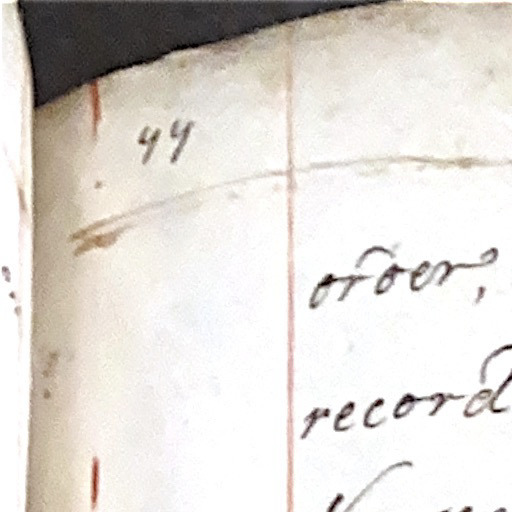 44
order,
record